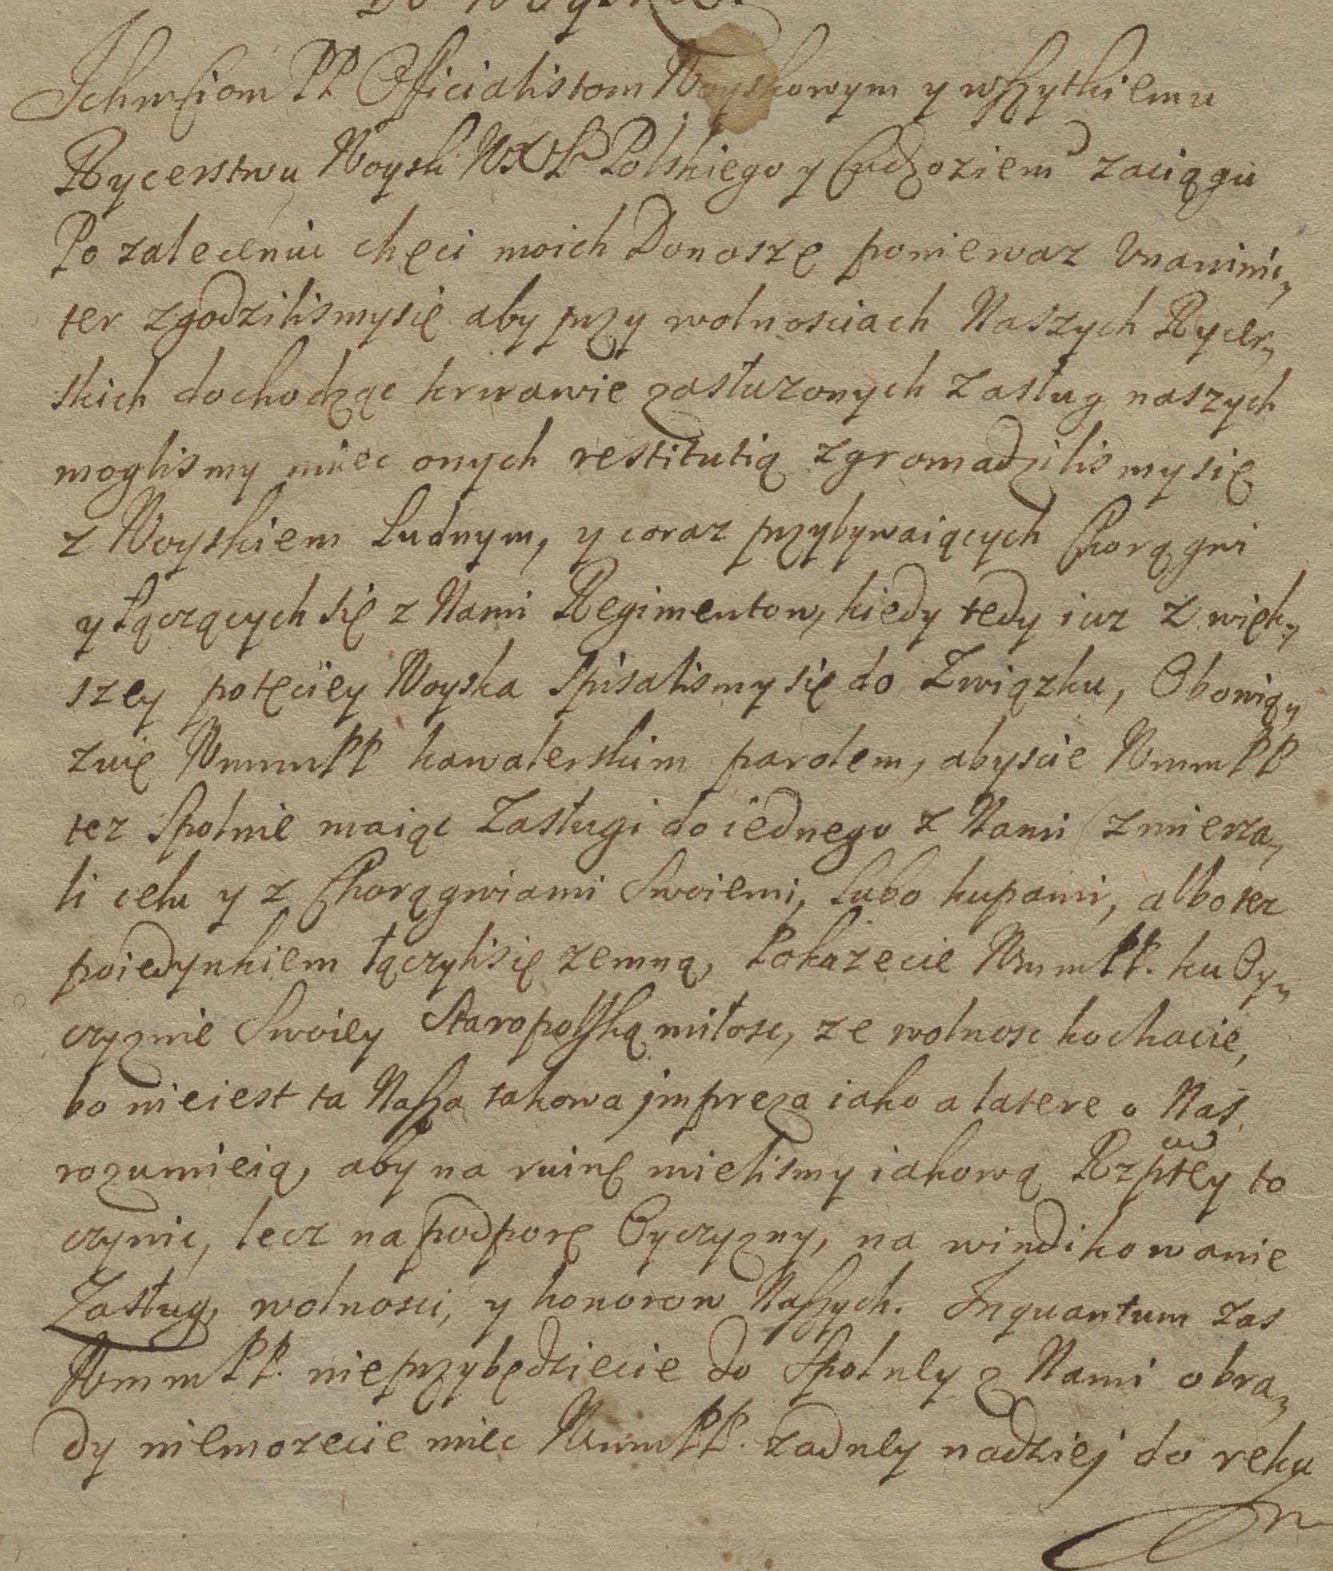 Do Woyska.
Ichmściom PP Officialistom Woyskowym y wszytkiemu
Rycerstwu Woysk WXL Polskiego y Cudzoziem zaciągu
Po zaleceniu chęci moich Donoszę poniewaz Vnanimi,
ter zgodzilismysię aby przy wolnosciach Naszych Rycer,
skich dochodząc krwawie zasłuzonych Zasług naszych
moglismy miec onych restitutią zgromadzilis mysię
z Woyskiem Ludnym, y coraz przybywaiących Chorągwi
y łączących się z Nami Regimentow, kiedy tedy iuz z więk,
szey potęciey Woyska Spisalismy się do Związku, Obowią,
zuię WmmPP kawalerskim parolem, abyscie WmmPP
tez Spolnie maiąc Zasługi do iednego z Nami zmierza,
li celu y z Chorągwiami Swoiemi, Lubo kupami, albo tez
poiedynkiem łączylisię zemną, Pokazecie WmmPP. ku Oy,
czyznie Swoiey Staropolską miłosc, ze wolnosc kochacie,
bo nieiest ta Nasza takowa jmpreza iako a latere o Nas
rozumieią, aby na ruinę mielismy iakową Rzptey to
czynic, lecz na podporę Oyczyzny, na windikowanie
Zasług, wolnosci, y honorow Naszych. Inquantum zas
WmmPP. nieprzybędziecie do Spolney z Nami obra,
dy niemozecie miec WmmPP. zadney nadziej do reku